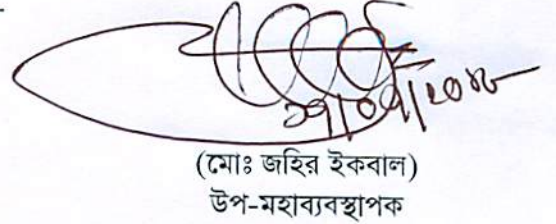 (মোঃ জহির ইকবাল)
উপ-মহাব্যবস্থাপক